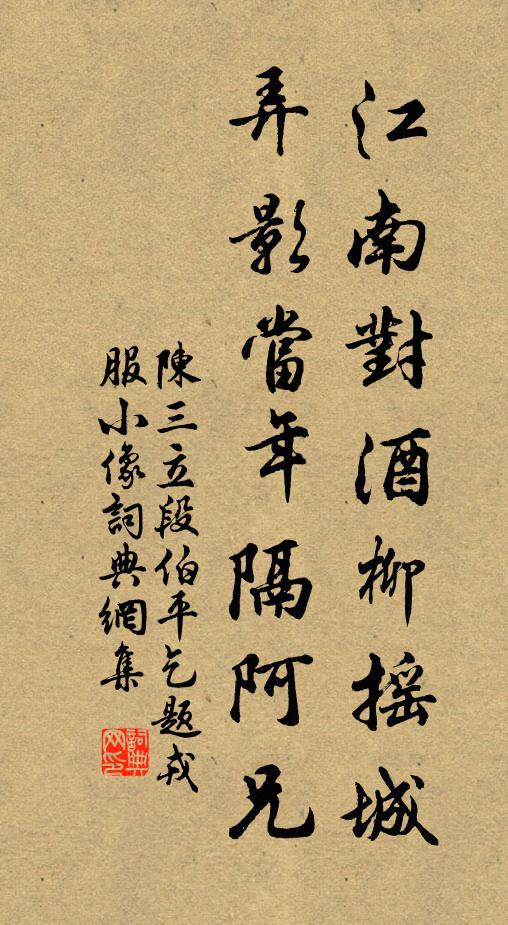 江南對酒柳搖城
弄影當年隔阿兄
陳三立段伯平乞題戎
服小像詞典網集
詞典
網印